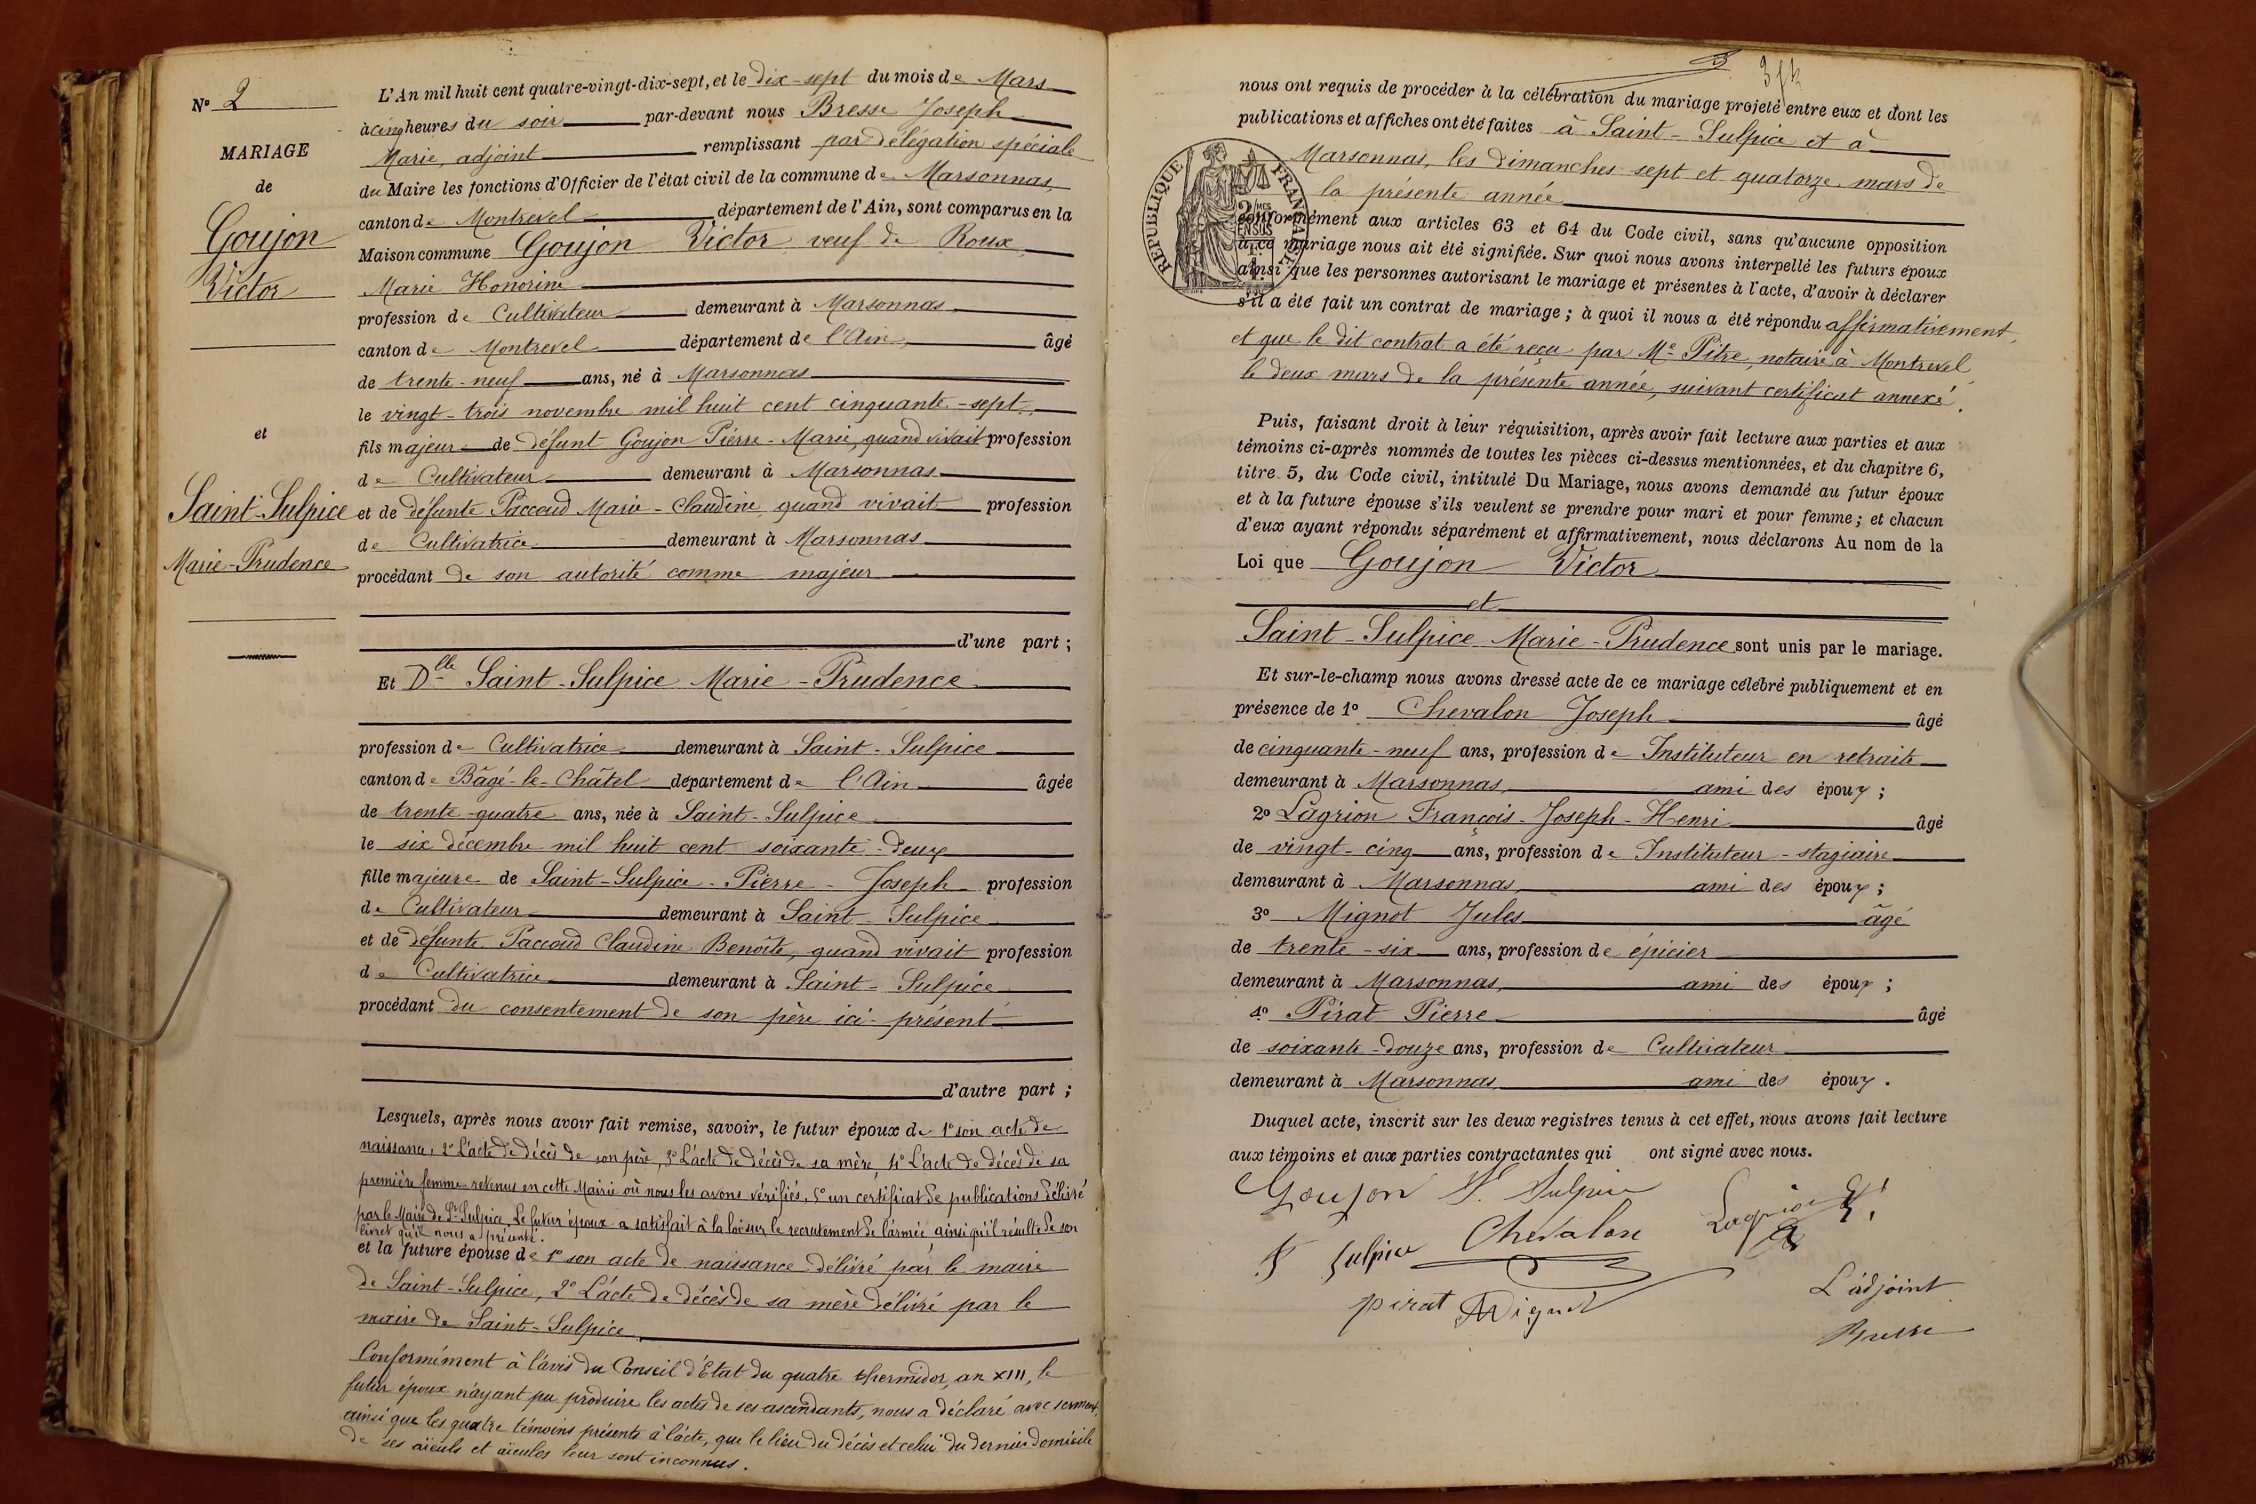 N° 2
MARIAGE
de
Goujon
Victor
et
Saint-Sulpice
Marie-Prudence
L'An mil huit cent quatre-vingt-dix-sept, et le dix-sept du mois de Mars
à cinq heures du soir par-devant nous Bresse Joseph
Marie, adjoint remplissant par délégation spéciale
du Maire les fonctions d'Officier de l'état civil de la commune de Marsonnas,
canton de Montrevel département de l'Ain, sont comparus en la
Maison commune Goujon Victor veuf de Roux
Marie Honorine
profession de Cultivateur demeurant à Marsonnas
canton de Montrevel département de l'Ain âgé
de trente-neuf ans, né à Marsonnas
le vingt-trois novembre mil huit cent cinquante-sept,
fils majeur de défunt Goujon Pierre-Marie, quand vivait profession
de Cultivateur demeurant à Marsonnas
et de défunte Paccoud Marie-Claudine quand vivait profession
de Cultivatrice demeurant à Marsonnas
procédant de son autorité comme majeur
d'une part ;
Et Dlle Saint-Sulpice Marie-Prudence
profession de Cultivatrice demeurant à Saint-Sulpice
canton de Bâgé-le-Châtel département de l'Ain âgée
de trente-quatre ans, née à Saint-Sulpice
le six décembre mil huit cent soixante-deux
fille majeure de Saint-Sulpice-Pierre-Joseph profession
de Cultivateur demeurant à Saint-Sulpice
et de défunte Paccoud Claudine Benoîte, quand vivait profession
de Cultivatrice demeurant à Saint-Sulpice
procédant du consentement de son père ici-présent
d'autre part ;
Lesquels, après nous avoir fait remise, savoir, le futur époux de 1° son acte de
naissance, 2° L'acte de décès de son père, 3° L'acte de décès de sa mère, 4° L'acte de décès de sa
première femme retenus en cette Mairie où nous les avons vérifiés, 5° un certificat de publications délivré
par le Maire de St Sulpice. Le futur époux a satisfait à la loi sur le recrutement de l'armée ainsi qu'il résulte de son
livret qu'il nous a présenté.
et la future épouse de 1° son acte de naissance délivré par le maire
de Saint-Sulpice, 2° L'acte de décès de sa mère délivré par le
maire de Saint-Sulpice
Conformément à l'avis du Conseil d'Etat du quatre thermidor, an XIII, le
futur époux n'ayant pu produire les actes de ses ascendants, nous a déclaré avec serment,
ainsi que les quatre témoins présents à l'acte, que le lieu du décès et celui du dernier domicile
de ses aïeuls et aïeules leur sont inconnus.
3
nous ont requis de procéder à la célébration du mariage projeté entre eux et dont les
publications et affiches ont été faites à Saint-Sulpice et à
Marsonnas, les dimanches sept et quatorze mars de
la présente année
REPUBLIQUE FRANÇAISE
conformément aux articles 63 et 64 du Code civil, sans qu'aucune opposition
à ce mariage nous ait été signifiée. Sur quoi nous avons interpellé les futurs époux
ainsi que les personnes autorisant le mariage et présentes à l'acte, d'avoir à déclarer
s'il a été fait un contrat de mariage ; à quoi il nous a été répondu affirmativement,
et que le dit contrat a été reçu par Me Pitre, notaire à Montrevel
le deux mars de la présente année, suivant certificat annexé.
Puis, faisant droit à leur réquisition, après avoir fait lecture aux parties et aux
témoins ci-après nommés de toutes les pièces ci-dessus mentionnées, et du chapitre 6,
titre 5, du Code civil, intitulé Du Mariage, nous avons demandé au futur époux
et à la future épouse s'ils veulent se prendre pour mari et pour femme ; et chacun
d'eux ayant répondu séparément et affirmativement, nous déclarons Au nom de la
Loi que Goujon Victor
et
Saint-Sulpice Marie-Prudence sont unis par le mariage.
Et sur-le-champ nous avons dressé acte de ce mariage célébré publiquement et en
présence de 1° Chevalon Joseph âgé
de cinquante-neuf ans, profession de Instituteur en retraite
demeurant à Marsonnas, ami des époux ;
2° Lagrion François-Joseph-Henri âgé
de vingt-cinq ans, profession de Instituteur-stagiaire
demeurant à Marsonnas, ami des époux ;
3° Mignot Jules âgé
de trente-six ans, profession de épicier
demeurant à Marsonnas, ami des époux ;
4° Pirat Pierre âgé
de soixante-douze ans, profession de Cultivateur
demeurant à Marsonnas ami des époux.
Duquel acte, inscrit sur les deux registres tenus à cet effet, nous avons fait lecture
aux témoins et aux parties contractantes qui ont signé avec nous.
Goujon St Sulpice Lagrion
St Sulpice Chevalon
pirat Mignot
L'adjoint
Bresse